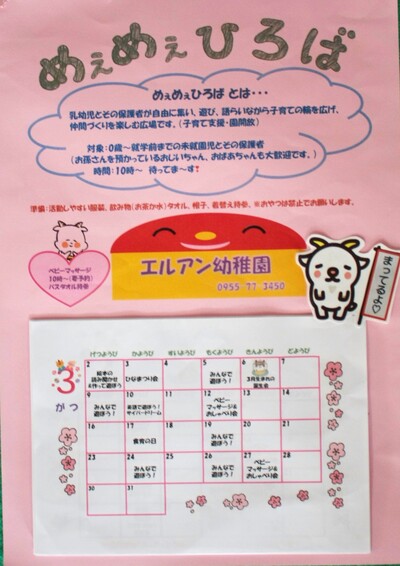 めぇめぇひろば
めぇめぇひろば とは・・・
乳幼児とその保護者が自由に集い、遊び、語らいながら子育ての輪を広げ、
仲間づくりを楽しむ広場です。(子育て支援・園開放)
対象:0歳~就学前までの未就園児とその保護者
(お孫さんを預かっているおじいちゃん、おばあちゃんも大歓迎です。)
時間:10時~ 待ってま~す!
準備:活動しやすい服装、飲み物(お茶か水)タオル、帽子、着替え持参、※おやつは禁止でお願いします。
ベビーマッサージ
10時~(要予約)
バスタオル持参
エルアン幼稚園
0955 77 3450
まってるよ♡
3
がつ
げつようび かようび すいようび もくようび きんようび どようび
2 3 4 5 6 7
絵本の
読み聞かせ
&作って遊ぼう
ひなまつり会
みんなで
遊ぼう!
3月生まれの
誕生会
9 10 11 12 13 14
みんなで
遊ぼう!
英語で遊ぼう!
サイバードリーム
ベビー
マッサージ&
おしゃべり会
みんなで
遊ぼう!
16 17 18 19 20 21
食育の日
みんなで
遊ぼう!
23 24 25 26 27 28
みんなで
遊ぼう!
みんなで
遊ぼう!
ベビー
マッサージ&
おしゃべり会
30 31